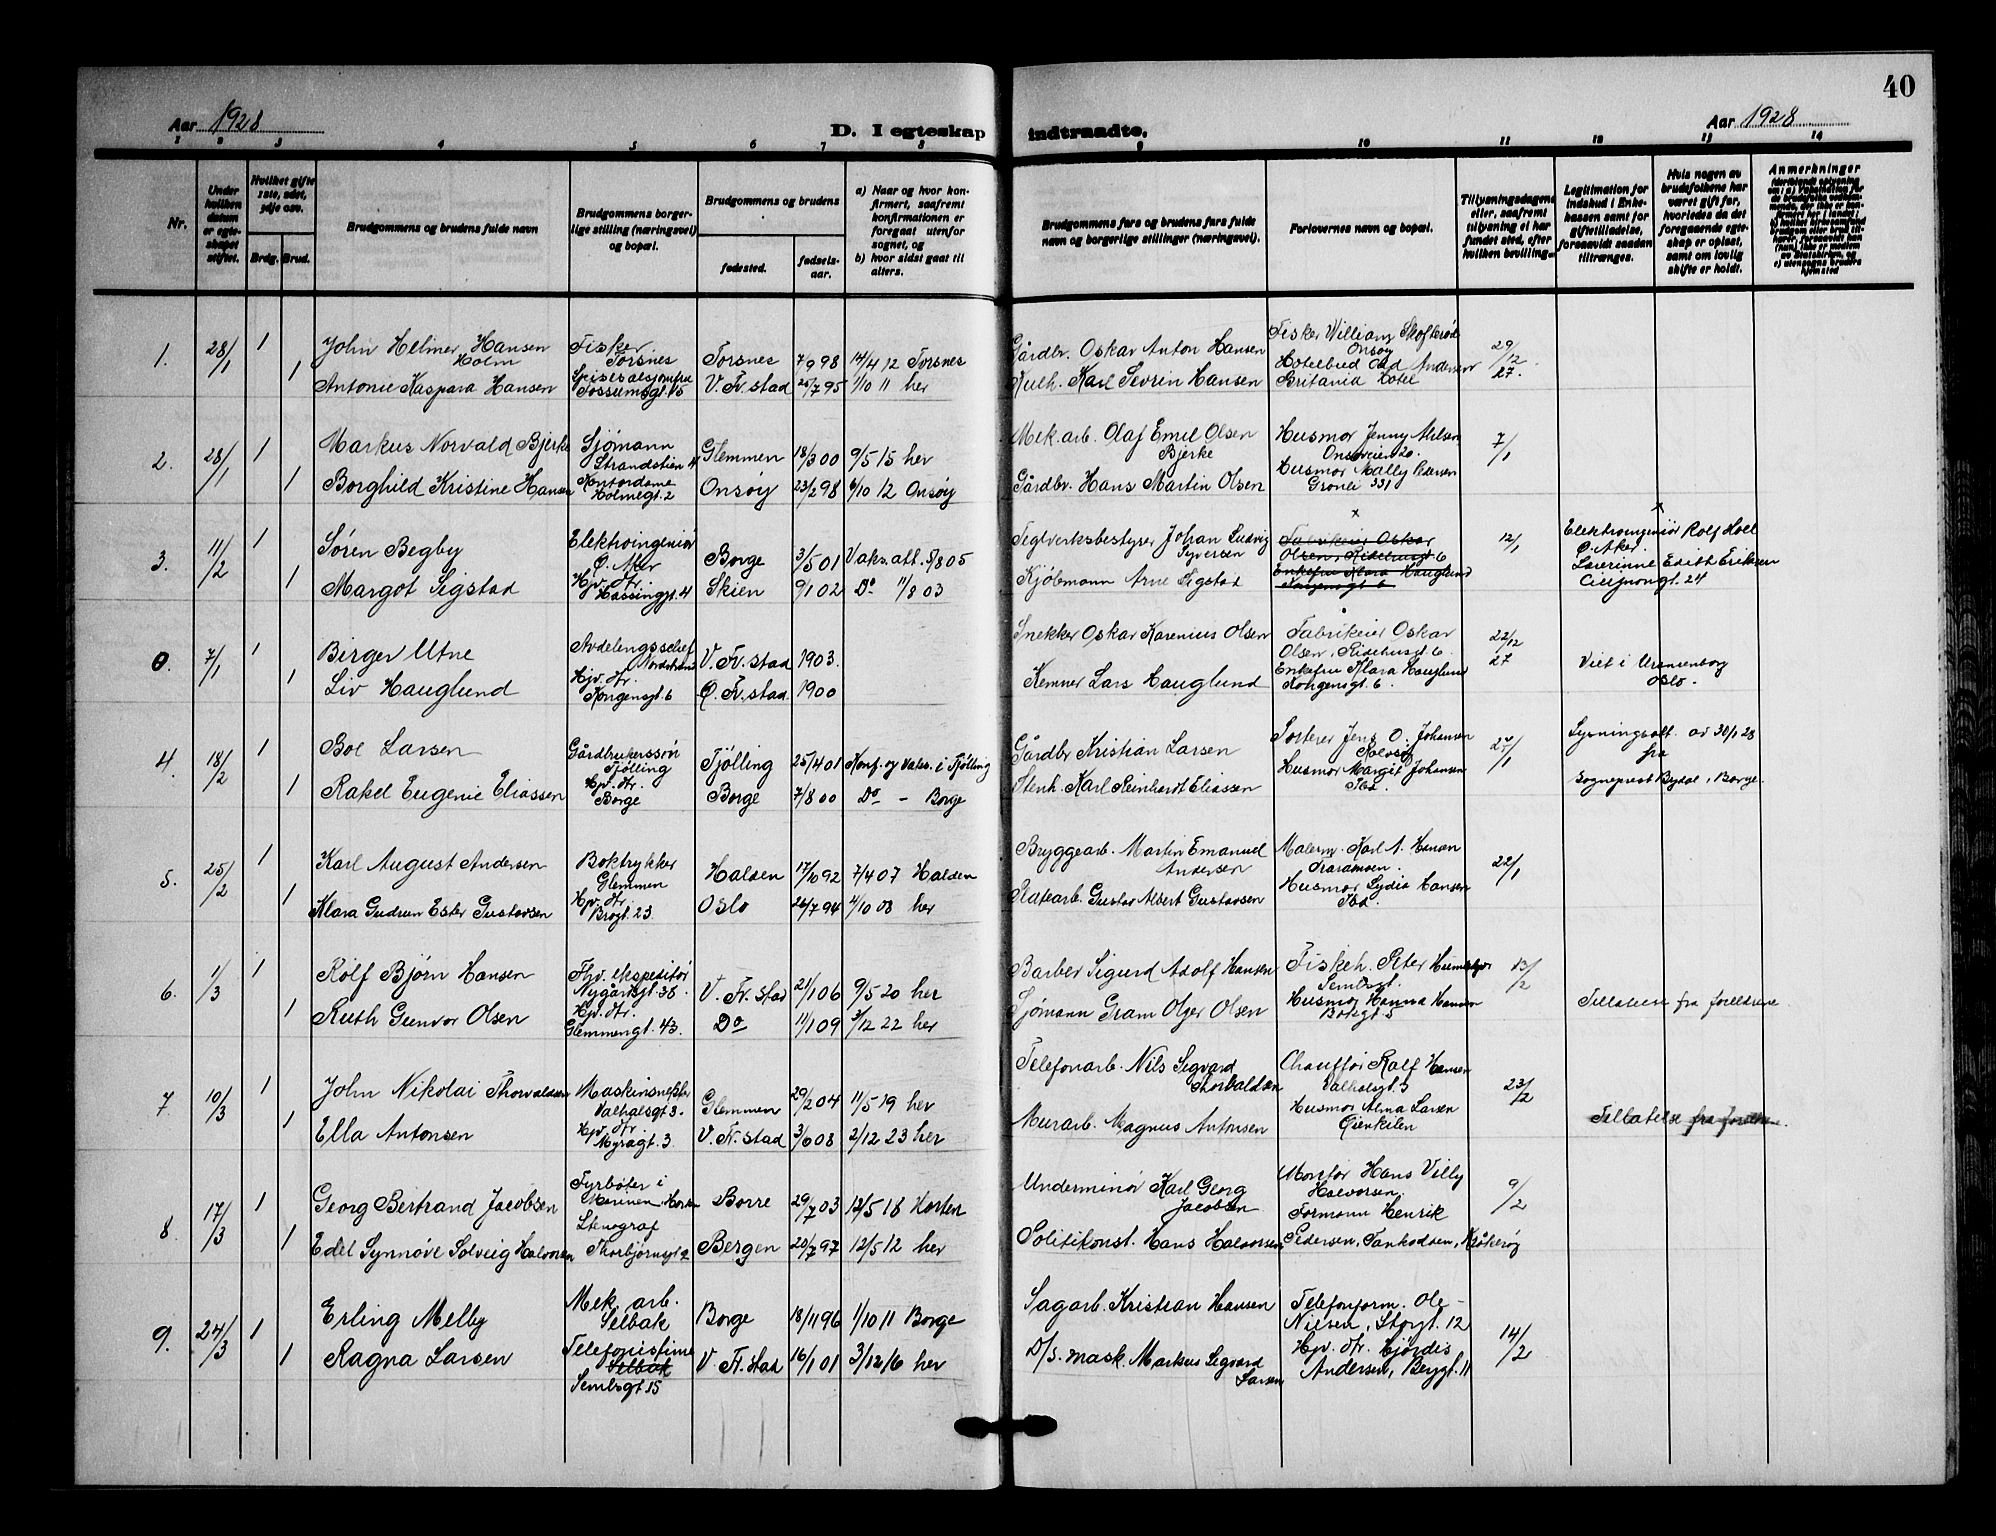 40
Aar 1928
D. I egteskap indtraadte.
Aar 1928
1 2 3 4 5 6 7 8 9 10 11 12 13 14
Nr.
Under hvilken datum er egteskapet stiftet.
Hvilket gifte 1ste, 2det, 3dje osv.
Brdg. Brud.
Brudgommens og brudens fulde navn
Brudgommens borgerlige stilling (næringsvei) og bopæl.
Brudgommens og brudens
fødested.
fødselsaar.
a) Naar og hvor konfirmert, saafremt konfirmationen er foregaat utenfor sognet, og
b) hvor sidst gaat til alters.
Brudgommens fars og brudens fars fulde navn og borgerlige stillinger (næringsvei).
Forlovernes navn og bopæl.
Tillysningsdagene eller, saafremt tillysning ei har fundet sted, efter hvilken bevilling.
Legitimation for indskud i Enkekassen samt for giftetilladelse, forsaavidt saadan tiltrænges.
Hvis nogen av brudefolkene har været gift før, hvorledes da det foregaaende egteskap er opløst, samt om lovlig skifte er holdt.
Anmerkninger
1. 28/1 1 John Helmer Hansen Holm Fisker Torsnes Torsnes 7/9 98 14/4 12 Torsnes Gårdbr. Oskar Anton Hansen Fisker William Onsøy 29/12 27.
1 Antonie Kaspara Hansen V. Fr.stad 26/7 95 1/10 11 her Karl Sevrin Hansen Hotelbud Andersen Britania Hotel
2. 28/1 1 Markus Norvald Bjerke Sjømann Strandstien 4 Glemmen 18/3 00 9/5 15 her Mek. arb. Olaf Emil Olsen Bjerke Husmor Jenny Nilsen Onsøveien 20. 7/1
1 Borghild Kristine Hansen Kontordame Holmegt. 2 Onsøy 23/2 98 6/10 12 Onsøy Gårdbr. Hans Martin Olsen Husmor Mally Petersen Grønli 331
3. 11/2 1 Søren Begby Elektroingeniør Ø. Aker Borge 3/5 01 Vaks.att. 5/8 05 Teglverksbestyrer Johan Ludvig Syversen Fabrikeier Oskar Olsen, Ridehusgt 6 12/1 Elektroingeniør Rolf Hoel Ø. Aker.
1 Margot Sigstad Hjv. dtr. Hassinggt. 4 Skien 9/1 02 Do 11/8 03 Kjøbmann Arne Sigstad Enkefru Klara Hauglund Kongensgt 6 Edith Eriksen 24
0. 7/1 1 Birger Utne Avdelingsschef Nordstrand V. Fr.stad 1903. Snekker Oskar Karenius Olsen Fabrikeier Oskar Olsen, Ridehusgt. 6. 22/12 27 Viet i Uranienborg Oslo.
1 Liv Hauglund Hjv. dtr. Kongensgt. 6 Ø. Fr.stad 1900 Kemner Lars Hauglund Enkefru Klara Hauglund Kongensgt. 6.
4. 18/2 1 Boe Larsen Gårdbrukerssøn Tjølling Tjølling 25/4 01 Konf. og Vaks. i Tjølling Gårdbr Kristian Larsen Jens O. Johansen Rolvsøy /1 Lysningsatt. av 30/1 28 fra
1 Rakel Eugenie Eliassen Hjv. dtr. Borge Borge 7/8 00 Do - Borge Stenh. Karl Reinhardt Eliassen Husmor Margit Johansen Ibd. Sogneprest Bydal i Borge.
5. 25/2 1 Karl August Andersen Boktrykker Glemmen Halden 17/10 92 7/4 07 Halden Bryggearb. Martin Emanuel Andersen Malerm. Karl A. Hansen Traramoen. 22/1
1 Klara Gudrun Ester Gustavsen Hjv. dtr. Brogt. 23 Oslo 26/7 94 4/10 08 her Gustav Albert Gustavsen Husmor Lydia Hansen Ibd.
6. 1/3 1 Rolf Bjørn Hansen Ekspeditør Nygårdsgt. 38. V. Fr. stad 21/1 06 9/5 20 her Barber Sigurd Adolf Hansen Fiskeh. Peter 13/2
1 Ruth Gunvor Olsen Hjv. dtr. Glemmengt. 43. Do 11/1 09 3/12 22 her Sjømann Gram Olger Olsen Husmor Hanna Hansen 5 Tillatelse fra foreldrene
7. 10/3 1 John Nikolai Thorvaldsen Valhalsgt 3. Glemmen 29/2 04 11/5 19 her Telefonarb. Nils Sigvard Thorvaldsen Chauffør Rolf Hansen Valhalsgt. 3 23/2
1 Ella Antonsen Hjv. dtr. Myragt. 3 V. Fr. stad 3/6 08 2/12 23 her Murarb. Magnus Antonsen Husmor Alma Larsen Gienkilen Tillatelse fra foreldrene.
8. 17/3 1 Georg Bertrand Jacobsen Fyrbøter i Marinen, Horten Borre 29/7 03 12/5 18 Horten Underminør Karl Georg Jacobsen Montør Hans Villy Halvorsen. 9/2
1 Edel Synnøve Solveig Halvorsen Stenograf Thorbjørnsgt 2 Bergen 20/7 97 12/5 12 her Politikonst. Hans Halvorsen Formann Henrik Pedersen, Tankodden, Kråkerøy
9. 24/3 1 Erling Melby Mek. arb. Selbak Borge 18/11 96 1/10 11 Borge Sagarb. Kristian Hansen Telefonform. Ole Nielsen, Storgt. 12 14/2
1 Ragna Larsen Telefonistinne Selbak Sembsgt 15 V. Fr. stad 16/1 01 3/12 16 her D/s. mask. Markus Sigvard Larsen Hjv. dtr. Hjørdis Andersen, Berggt. 11